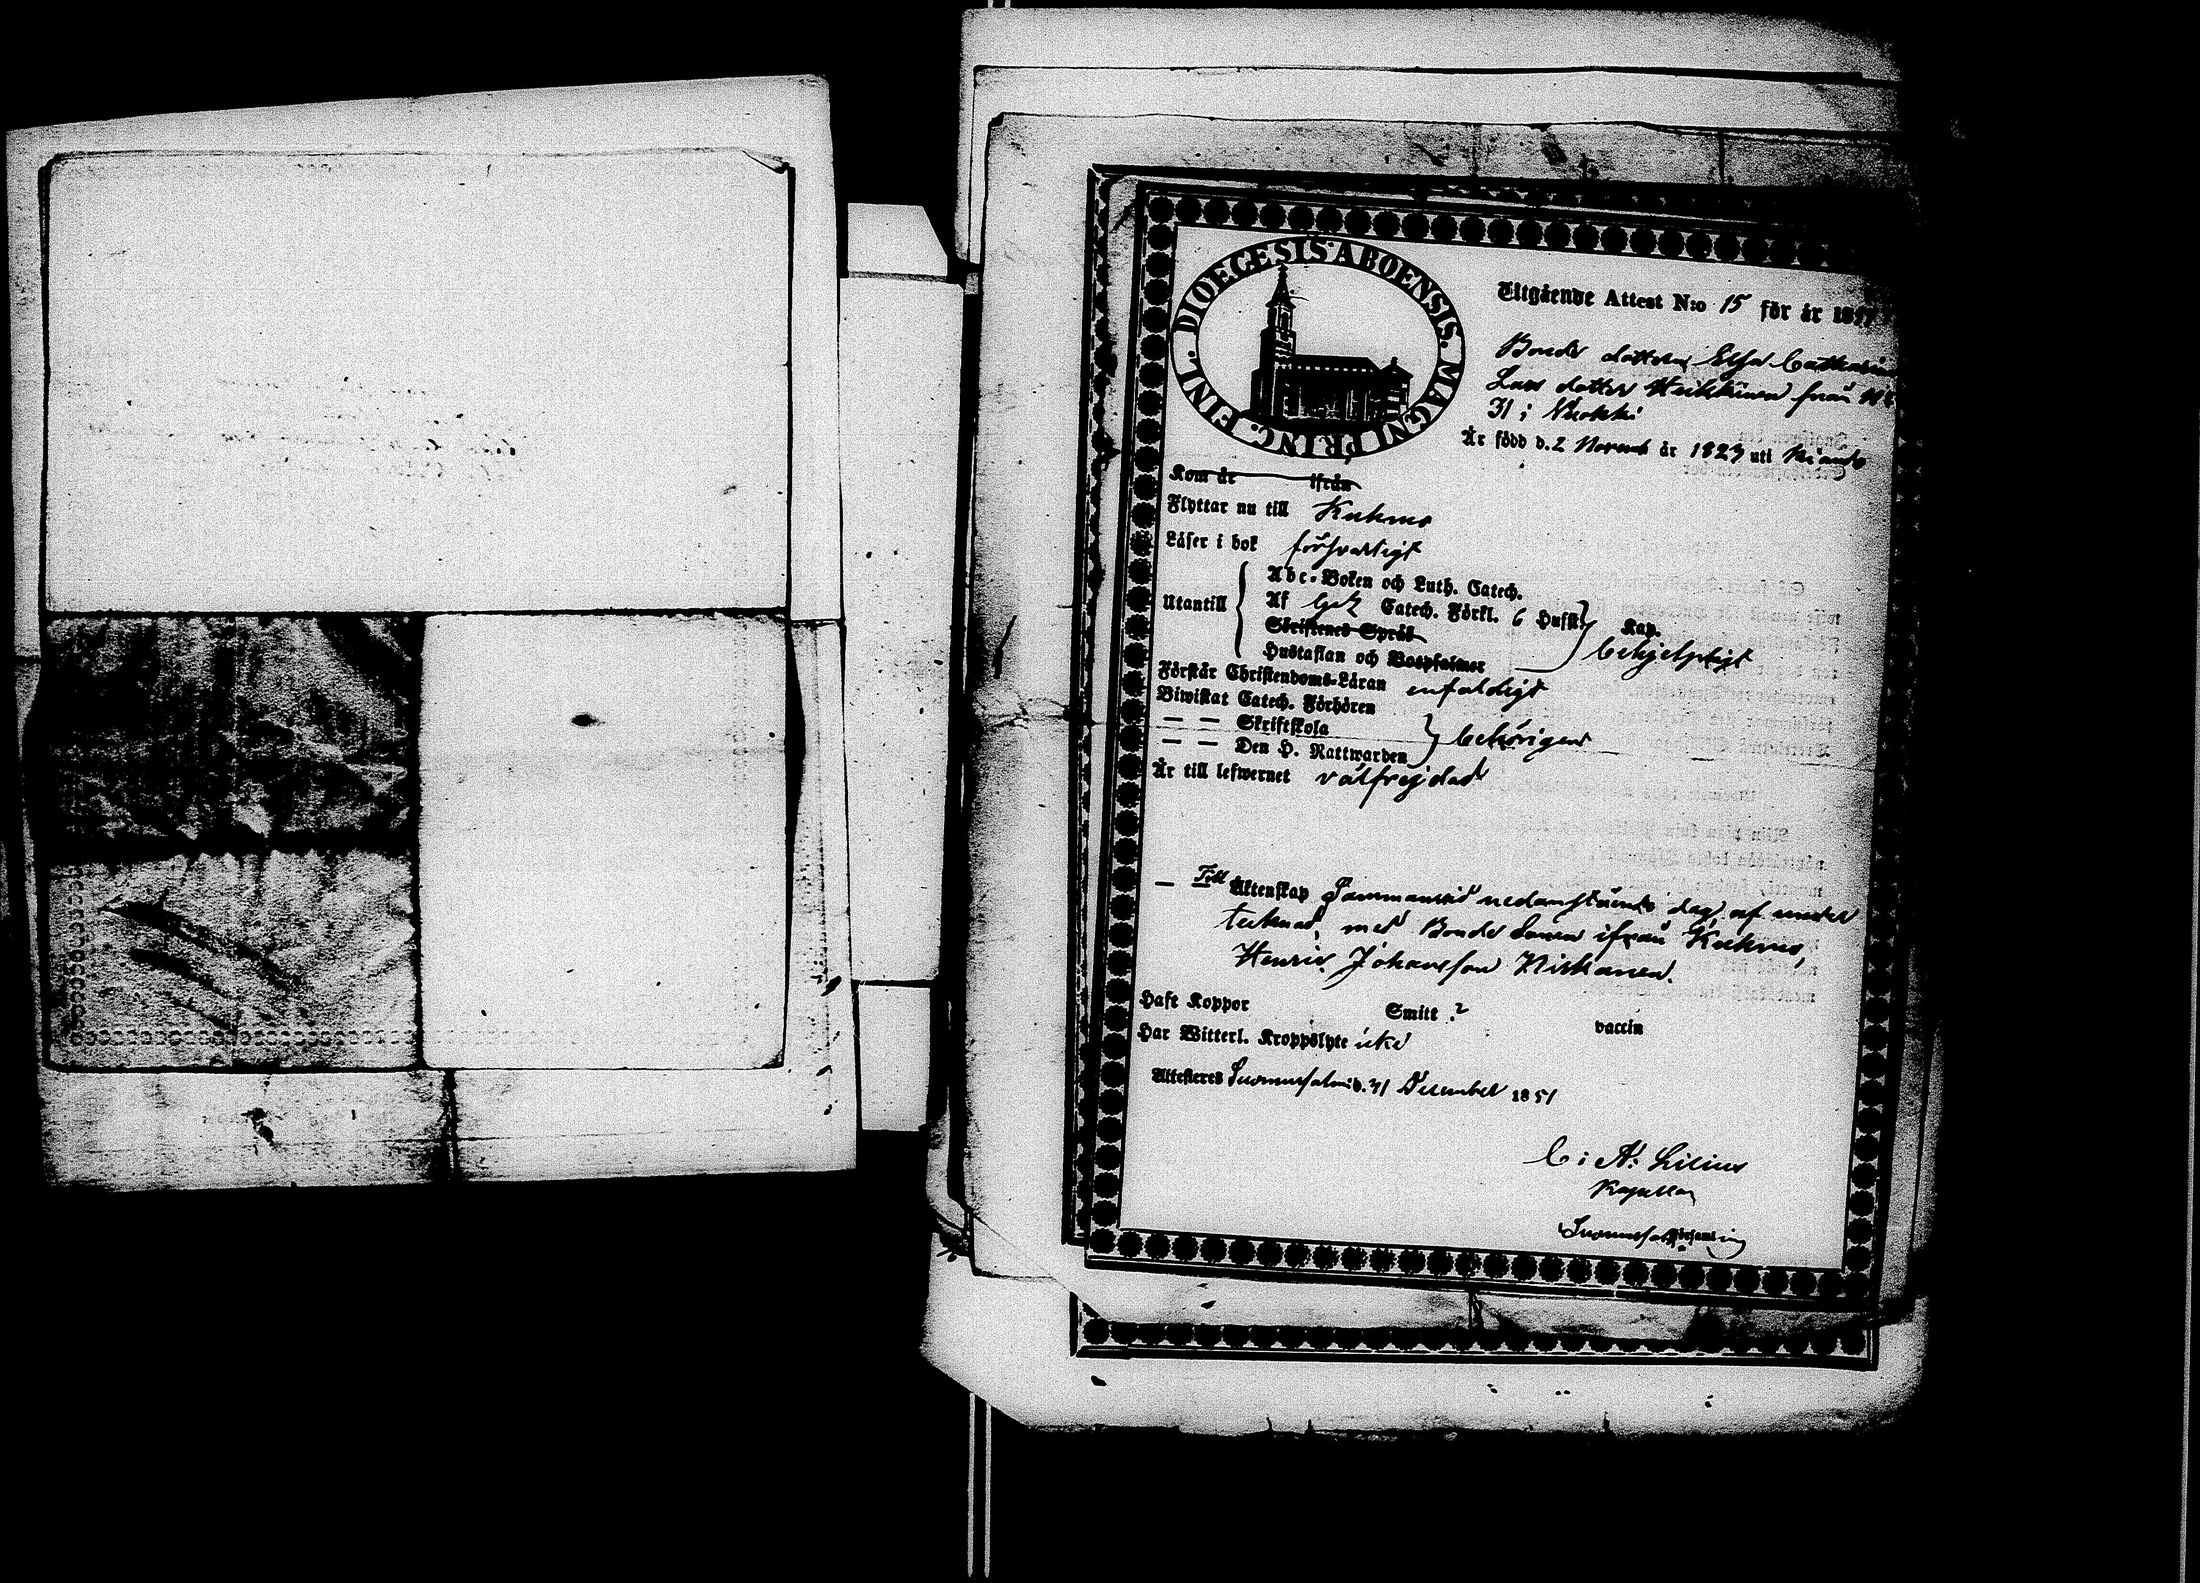 DIOECESIS ABOENSIS. MAGNI PRINC. FINL.
Utgående Attest N:o 15 för år 18
Bonde dottern Elsa Catharina
Lars dotter Heikkinen från N:o
31 i Vuokki
Är född d. 2 Novemb år 1823 uti Kianto
Kom år ifrån
Flyttar nu till Kuhmo
Läser i bok försvarligt
Utantill
Abc-Boken och Luth. Catech.
Af Catech. Förkl. 6 Hufst. Kap.
Skriftenes Språk
Hustaflan och Botpsalmer
behjelpligt
Förstår Christendoms-Läran enfaldigt
Biwistat Catech. Förhören
— — Skriftskola
— — Den H. Nattwarden
behörigen
Är till lefwernet välfrejdad
— Till Äktenskap Sammanvid nedanstående dag, af under
tecknad, med Bonde Sonen ifrån Kuhmo,
Henric Johansson Niskanen.
Haft Koppor Smitt ? vaccin
Har Witterl. Kroppslyte icke
Attesteras Suomussalmi d. 31 December 1851
C: A: Lilius
Kapellan
Suomussal Församling